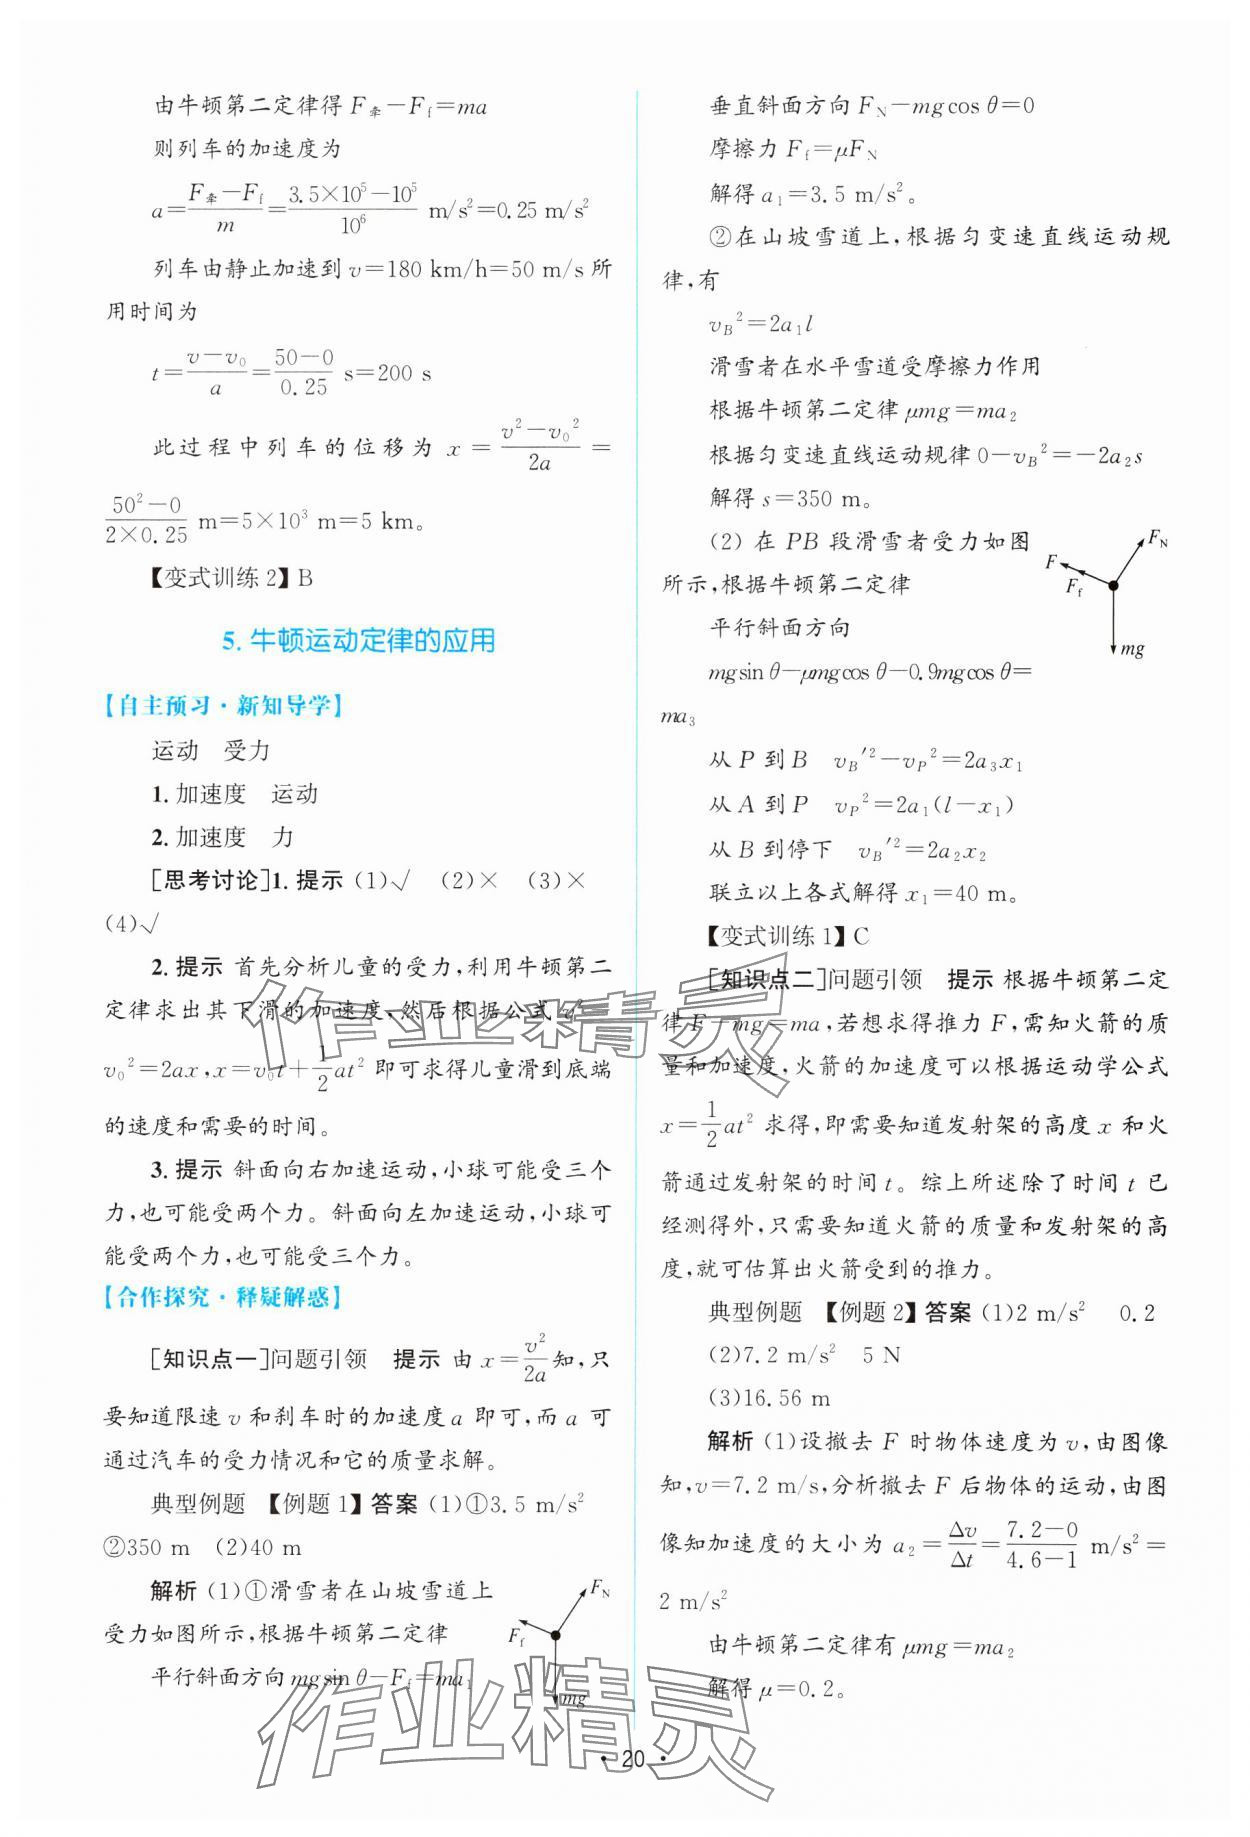 由牛顿第二定律得 F牵-Ff=ma
则列车的加速度为
a=(F牵-Ff)/m=(3.5×10⁵-10⁵)/10⁶ m/s²=0.25 m/s²
列车由静止加速到 v=180 km/h=50 m/s 所
用时间为
t=(v-v₀)/a=(50-0)/0.25 s=200 s
此过程中列车的位移为 x=(v²-v₀²)/2a=
(50²-0)/(2×0.25) m=5×10³ m=5 km。
【变式训练2】B
5. 牛顿运动定律的应用
【自主预习·新知导学】
运动 受力
1. 加速度 运动
2. 加速度 力
[思考讨论]1. 提示 (1)√ (2)× (3)×
(4)√
2. 提示 首先分析儿童的受力,利用牛顿第二
定律求出其下滑的加速度,然后根据公式 v²-
v₀²=2ax,x=v₀t+1/2at² 即可求得儿童滑到底端
的速度和需要的时间。
3. 提示 斜面向右加速运动,小球可能受三个
力,也可能受两个力。斜面向左加速运动,小球可
能受两个力,也可能受三个力。
【合作探究·释疑解惑】
[知识点一]问题引领 提示 由 x=v²/2a知,只
要知道限速 v 和刹车时的加速度 a 即可,而 a 可
通过汽车的受力情况和它的质量求解。
典型例题 【例题1】答案 (1)①3.5 m/s²
②350 m (2)40 m
解析 (1)①滑雪者在山坡雪道上
受力如图所示,根据牛顿第二定律
平行斜面方向 mgsin θ-Ff=ma₁
FN
Ff
mg
垂直斜面方向 FN-mgcos θ=0
摩擦力 Ff=μFN
解得 a₁=3.5 m/s²。
②在山坡雪道上,根据匀变速直线运动规
律,有
vB²=2a₁l
滑雪者在水平雪道受摩擦力作用
根据牛顿第二定律 μmg=ma₂
根据匀变速直线运动规律 0-vB²=-2a₂s
解得 s=350 m。
(2) 在 PB 段滑雪者受力如图
所示,根据牛顿第二定律
平行斜面方向
mgsin θ-μmgcos θ-0.9mgcos θ=
ma₃
FN
F
Ff
mg
从 P 到 B vB′²-vP²=2a₃x₁
从 A 到 P vP²=2a₁(l-x₁)
从 B 到停下 vB′²=2a₂x₂
联立以上各式解得 x₁=40 m。
【变式训练1】C
[知识点二]问题引领 提示 根据牛顿第二定
律 F-mg=ma,若想求得推力 F,需知火箭的质
量和加速度,火箭的加速度可以根据运动学公式
x=1/2at² 求得,即需要知道发射架的高度 x 和火
箭通过发射架的时间 t。综上所述除了时间 t 已
经测得外,只需要知道火箭的质量和发射架的高
度,就可估算出火箭受到的推力。
典型例题 【例题2】答案 (1)2 m/s² 0.2
(2)7.2 m/s² 5 N
(3)16.56 m
解析 (1)设撤去 F 时物体速度为 v,由图像
知,v=7.2 m/s,分析撤去 F 后物体的运动,由图
像知加速度的大小为 a₂=Δv/Δt=(7.2-0)/(4.6-1) m/s²=
2 m/s²
由牛顿第二定律有 μmg=ma₂
解得 μ=0.2。
作业精灵
作业精灵
·20·